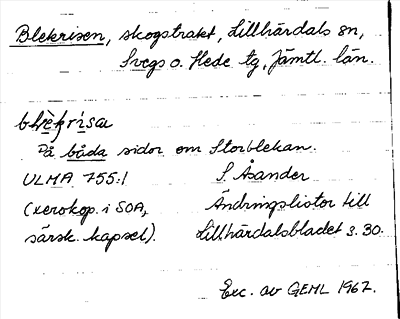 Blekrisen, skogstrakt, Lillhärdals sn,
Svegs o. Hede tg, Jämtl. län.
På båda sidor om Storblekan.
ULMA 755:1 S Åsander
(xerokop. i SOA, Ändringslistor till
särsk. kapsel). Lillhärdalsbladet s. 30.
Exc. av GEHL 1967.